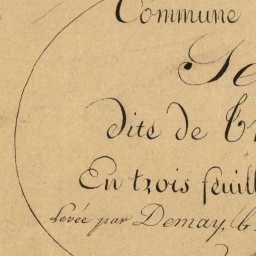 Commune
Se
dite de
En trois feuill
Levée par Demay,